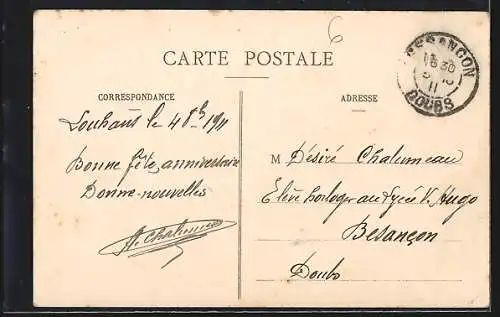 6
CARTE POSTALE
BESANÇON
DOUBS
CORRESPONDANCE
ADRESSE
Louhans le 4 8bre 1911
Bonne fête anniversaire
Donne nouvelles
Chalumeau
M Désiré Chalumeau
Elève horloger au Lycée V. Hugo
Besançon
Doubs